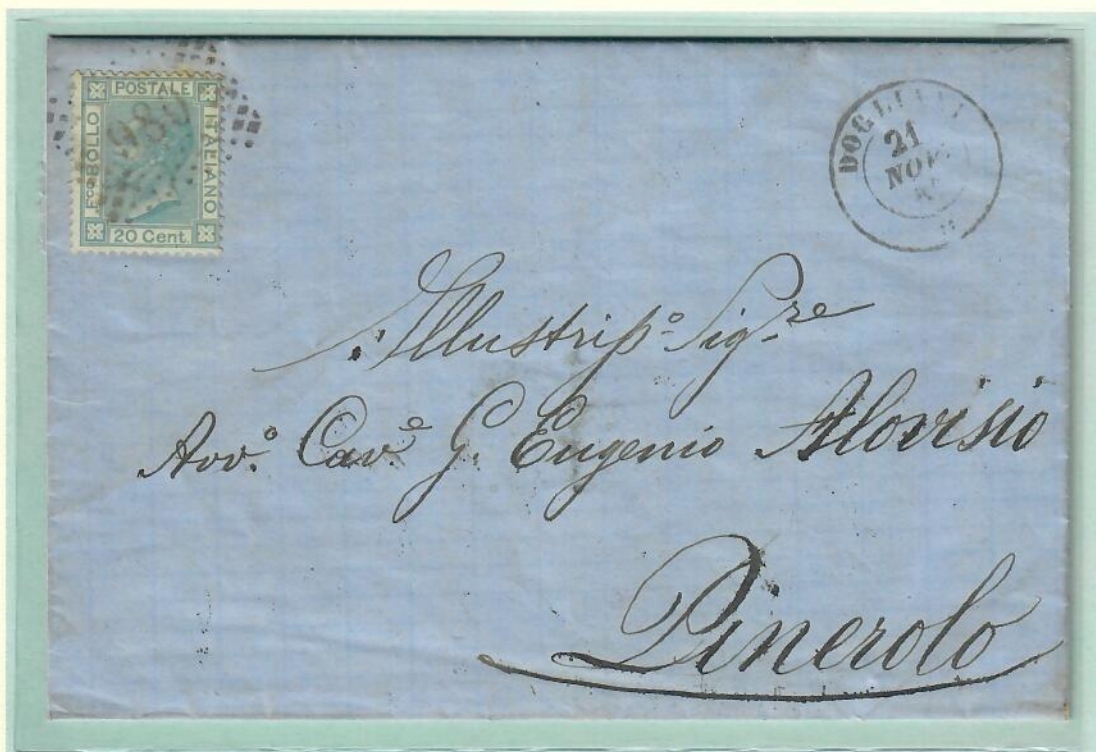 POSTALE
Fco BOLLO
ITALIANO
20 Cent.
980
21
NOV
Illustriss.º Sig.re
Avv.º Cav.e G. Eugenio Alovisio
Pinerolo